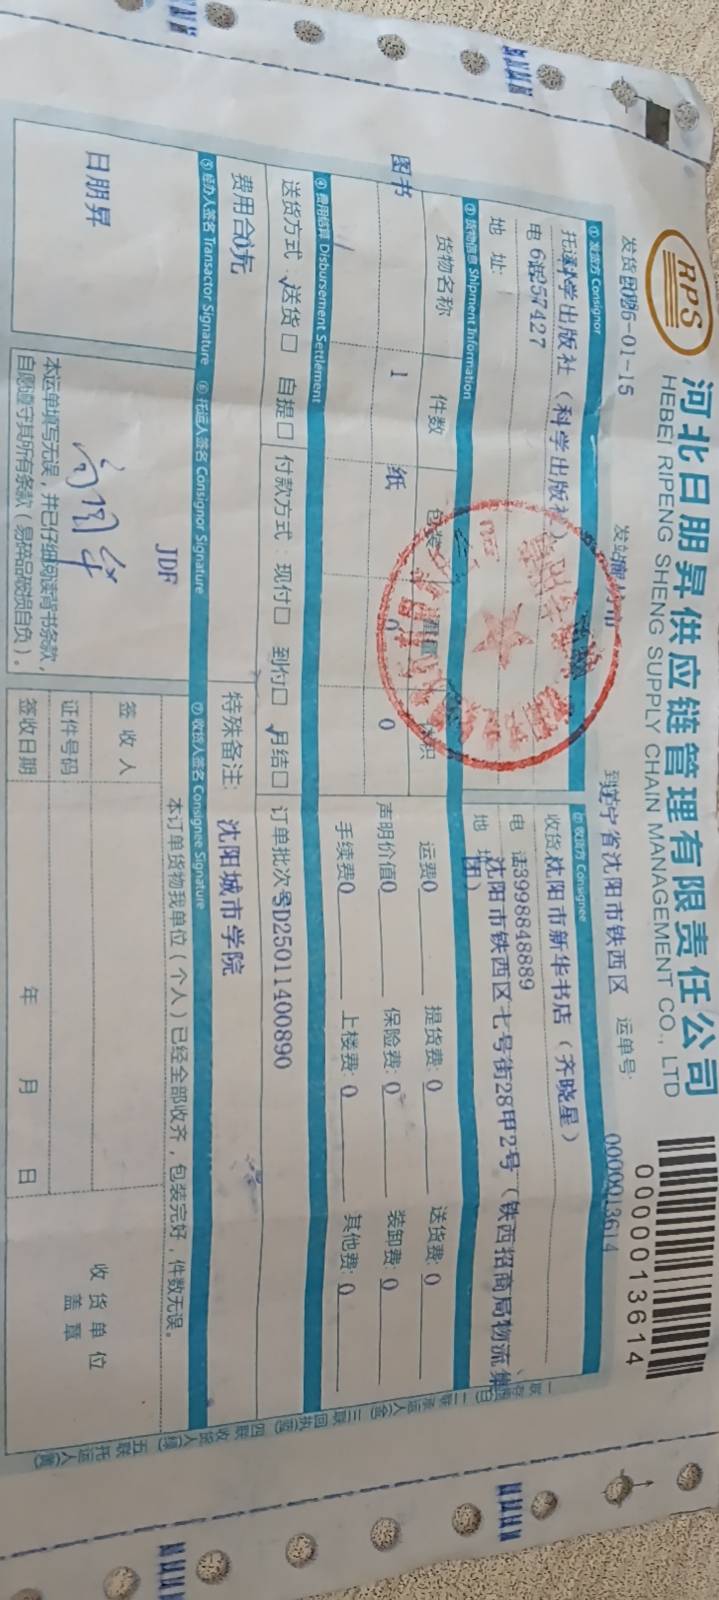 RPS
河北日朋昇供应链管理有限责任公司
HEBEI RIPENG SHENG SUPPLY CHAIN MANAGEMENT CO., LTD
0000013614
发货 -01-15
到 辽宁省沈阳市铁西区
运单号: 0000013614
① 发货方 Consignor
科学出版社(科学出版社)
电 257427
地 址:
② 收货方 Consignee
收货 沈阳市新华书店(齐晓星)
电 话 3998848889
地 址 沈阳市铁西区七号街28甲2号(铁西招商局物流集
团)
③ 货物信息 Shipment Information
货物名称 件数 包装 重量 体积
图书 1 纸 0 0
运费0 提货费: 0 送货费: 0
声明价值0 保险费: 0 装卸费: 0
手续费0 上楼费: 0 其他费: 0
④ 费用结算 Disbursement Settlement
送货方式: 送货□ 自提□ 付款方式: 现付□ 到付□ 月结□ 订单批次号D25011400890
费用合 0元
特殊备注: 沈阳城市学院
⑤ 经办人签名 Transactor Signature
⑥ 托运人签名 Consignor Signature
⑦ 收货人签名 Consignee Signature
日朋昇
JDF
本运单填写无误,并已仔细阅读背书条款,
自愿遵守其所有条款(易碎品破损自负)。
本订单货物我单位(个人)已经全部收齐,包装完好,件数无误。
签收人
证件号码
签收日期 年 月 日
收货单位
盖章